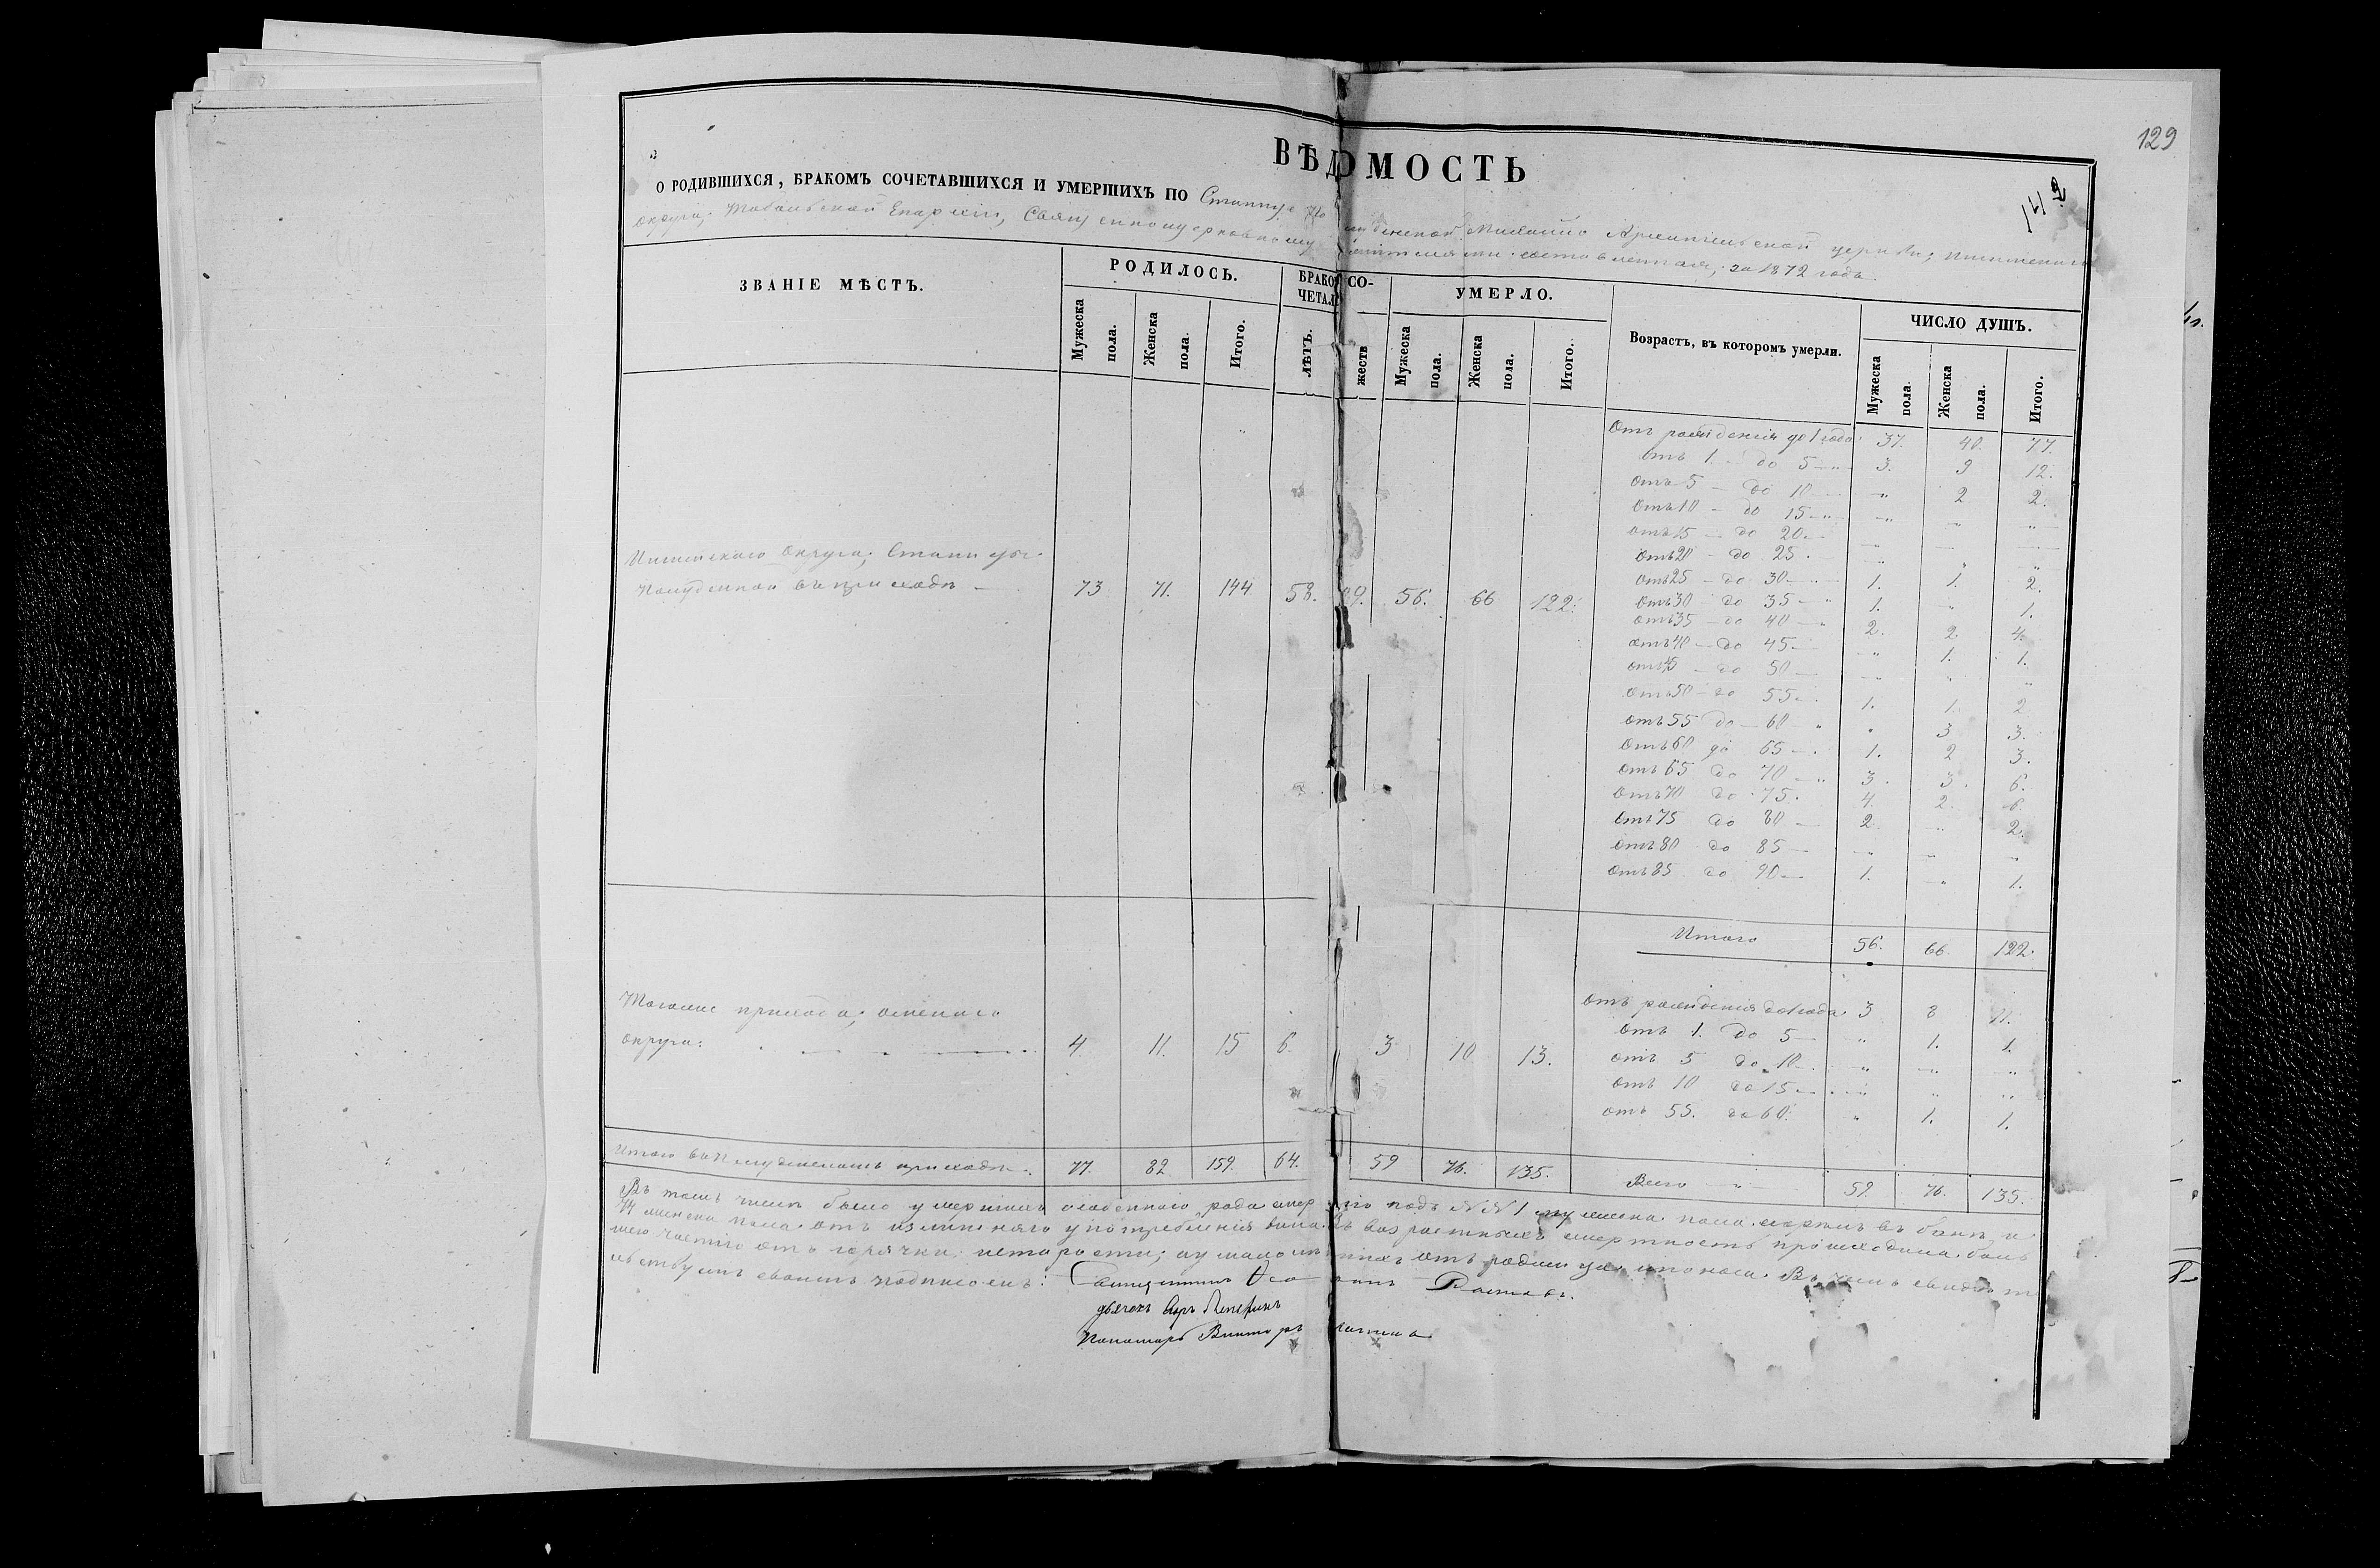 129
ВѢДОМОСТЬ
142
О РОДИВШИХСЯ, БРАКОМЪ СОЧЕТАВШИХСЯ И УМЕРШИХЪ ПО Станицѣ Архангельской церкви, Ишимскаго
округа, Тобольской Епархіи, Священноцерковнослужителями составленная, за 1872 годъ.
ЗВАНІЕ МѢСТЪ.
РОДИЛОСЬ.
БРАКО СО-
ЧЕТАЛ
УМЕРЛО.
Возрастъ, въ которомъ умерли.
ЧИСЛО ДУШЪ.
Мужеска пола. Женска пола. Итого. ЛѢТЪ. жеств Мужеска пола. Женска пола. Итого. Мужеска пола. Женска пола. Итого.
Отъ рожденія до 1 года 37. 40. 77.
отъ 1. до 5 — 3. 9 12.
отъ 5 — до 10 — " 2 2.
отъ 10 — до 15 — " " "
отъ 15 — до 20 — " — —
отъ 20 — до 25 . " " "
отъ 25 — до 30 — 1. 1. 2.
отъ 30 до 35 — 1. " 1.
отъ 35 — до 40 — 2. 2. 4.
отъ 40 — до 45 — " 1. 1.
отъ 45 — до 50 — " " "
отъ 50 — до 55 — 1. 1. 2
отъ 55 до — 60 — " 3 3.
отъ 60 до 65 — 1. 2 3.
отъ 65 до 70 — 3. 3. 6.
отъ 70 до 75. 4. 2. 6.
отъ 75 до 80 — 2 " 2.
отъ 80 до 85 — " " "
отъ 85 до 90 — 1. " 1.
Ишимскаго Округа, Станицы
Полуденной въ приходѣ — 73 71. 144 58. 56. 66 122.
Итого 56. 66. 122.
отъ рожденія до 1 года 3 8 11.
отъ 1. до 5 — " 1. 1.
отъ 5 до 10 — " " "
отъ 10 до 15 — " " "
отъ 55. до 60. " 1. 1.
Тогоже прихода, Омскаго
округа: 4 11. 15 6. 3 10 13.
Итого въ Полуденскомъ приходѣ 77. 82 159. 64. 59 76. 135.
Всего " 59. 76. 135.
Въ томъ числѣ было умершихъ особеннаго рода подъ №№ 1 мужеска пола въ банѣ, и
14 женска пола отъ излишняго употребленія вина. Въ возрастныхъ смертность происходила боль
шею частію отъ горячки и старости; а у малолѣтнихъ отъ родимца и поноса. Въ чемъ свидѣтель
ствуемъ своимъ подписомъ: Священникъ
дьячекъ
Пономарь Викторъ